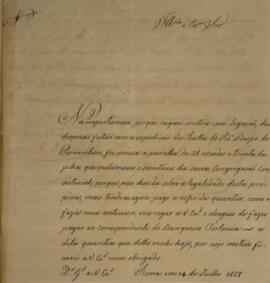 Illmo e Exmo Snr
Na importancia porque saquei contra essa Legação, das
despezas feitas com a expedição das Bullas do Rdo Bispo de
Pernambuco, foi omissa a parcella de 38 escudos e trinta ba
jochos, que reclamava o Secretario da sacra Congregação Con
sistorial, porque nas duvidas sobre a legalidade desta pre
tenção, mas tendo agora pago a referida quantia, como o
fazia meu antecessor, vou rogar a V. Exa o obsequio de fazer
pagar ao correspondente do Banqueiro Torlonia
esta quantia que delle recebi hoje, por cujo motivo fica
rei a V. Exa mui obrigado.
Ds Ge a V. Exa Roma em 14 de Julho